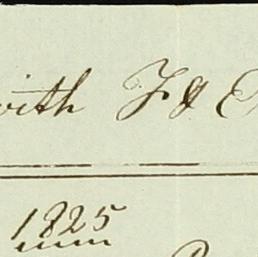 with F &
1825